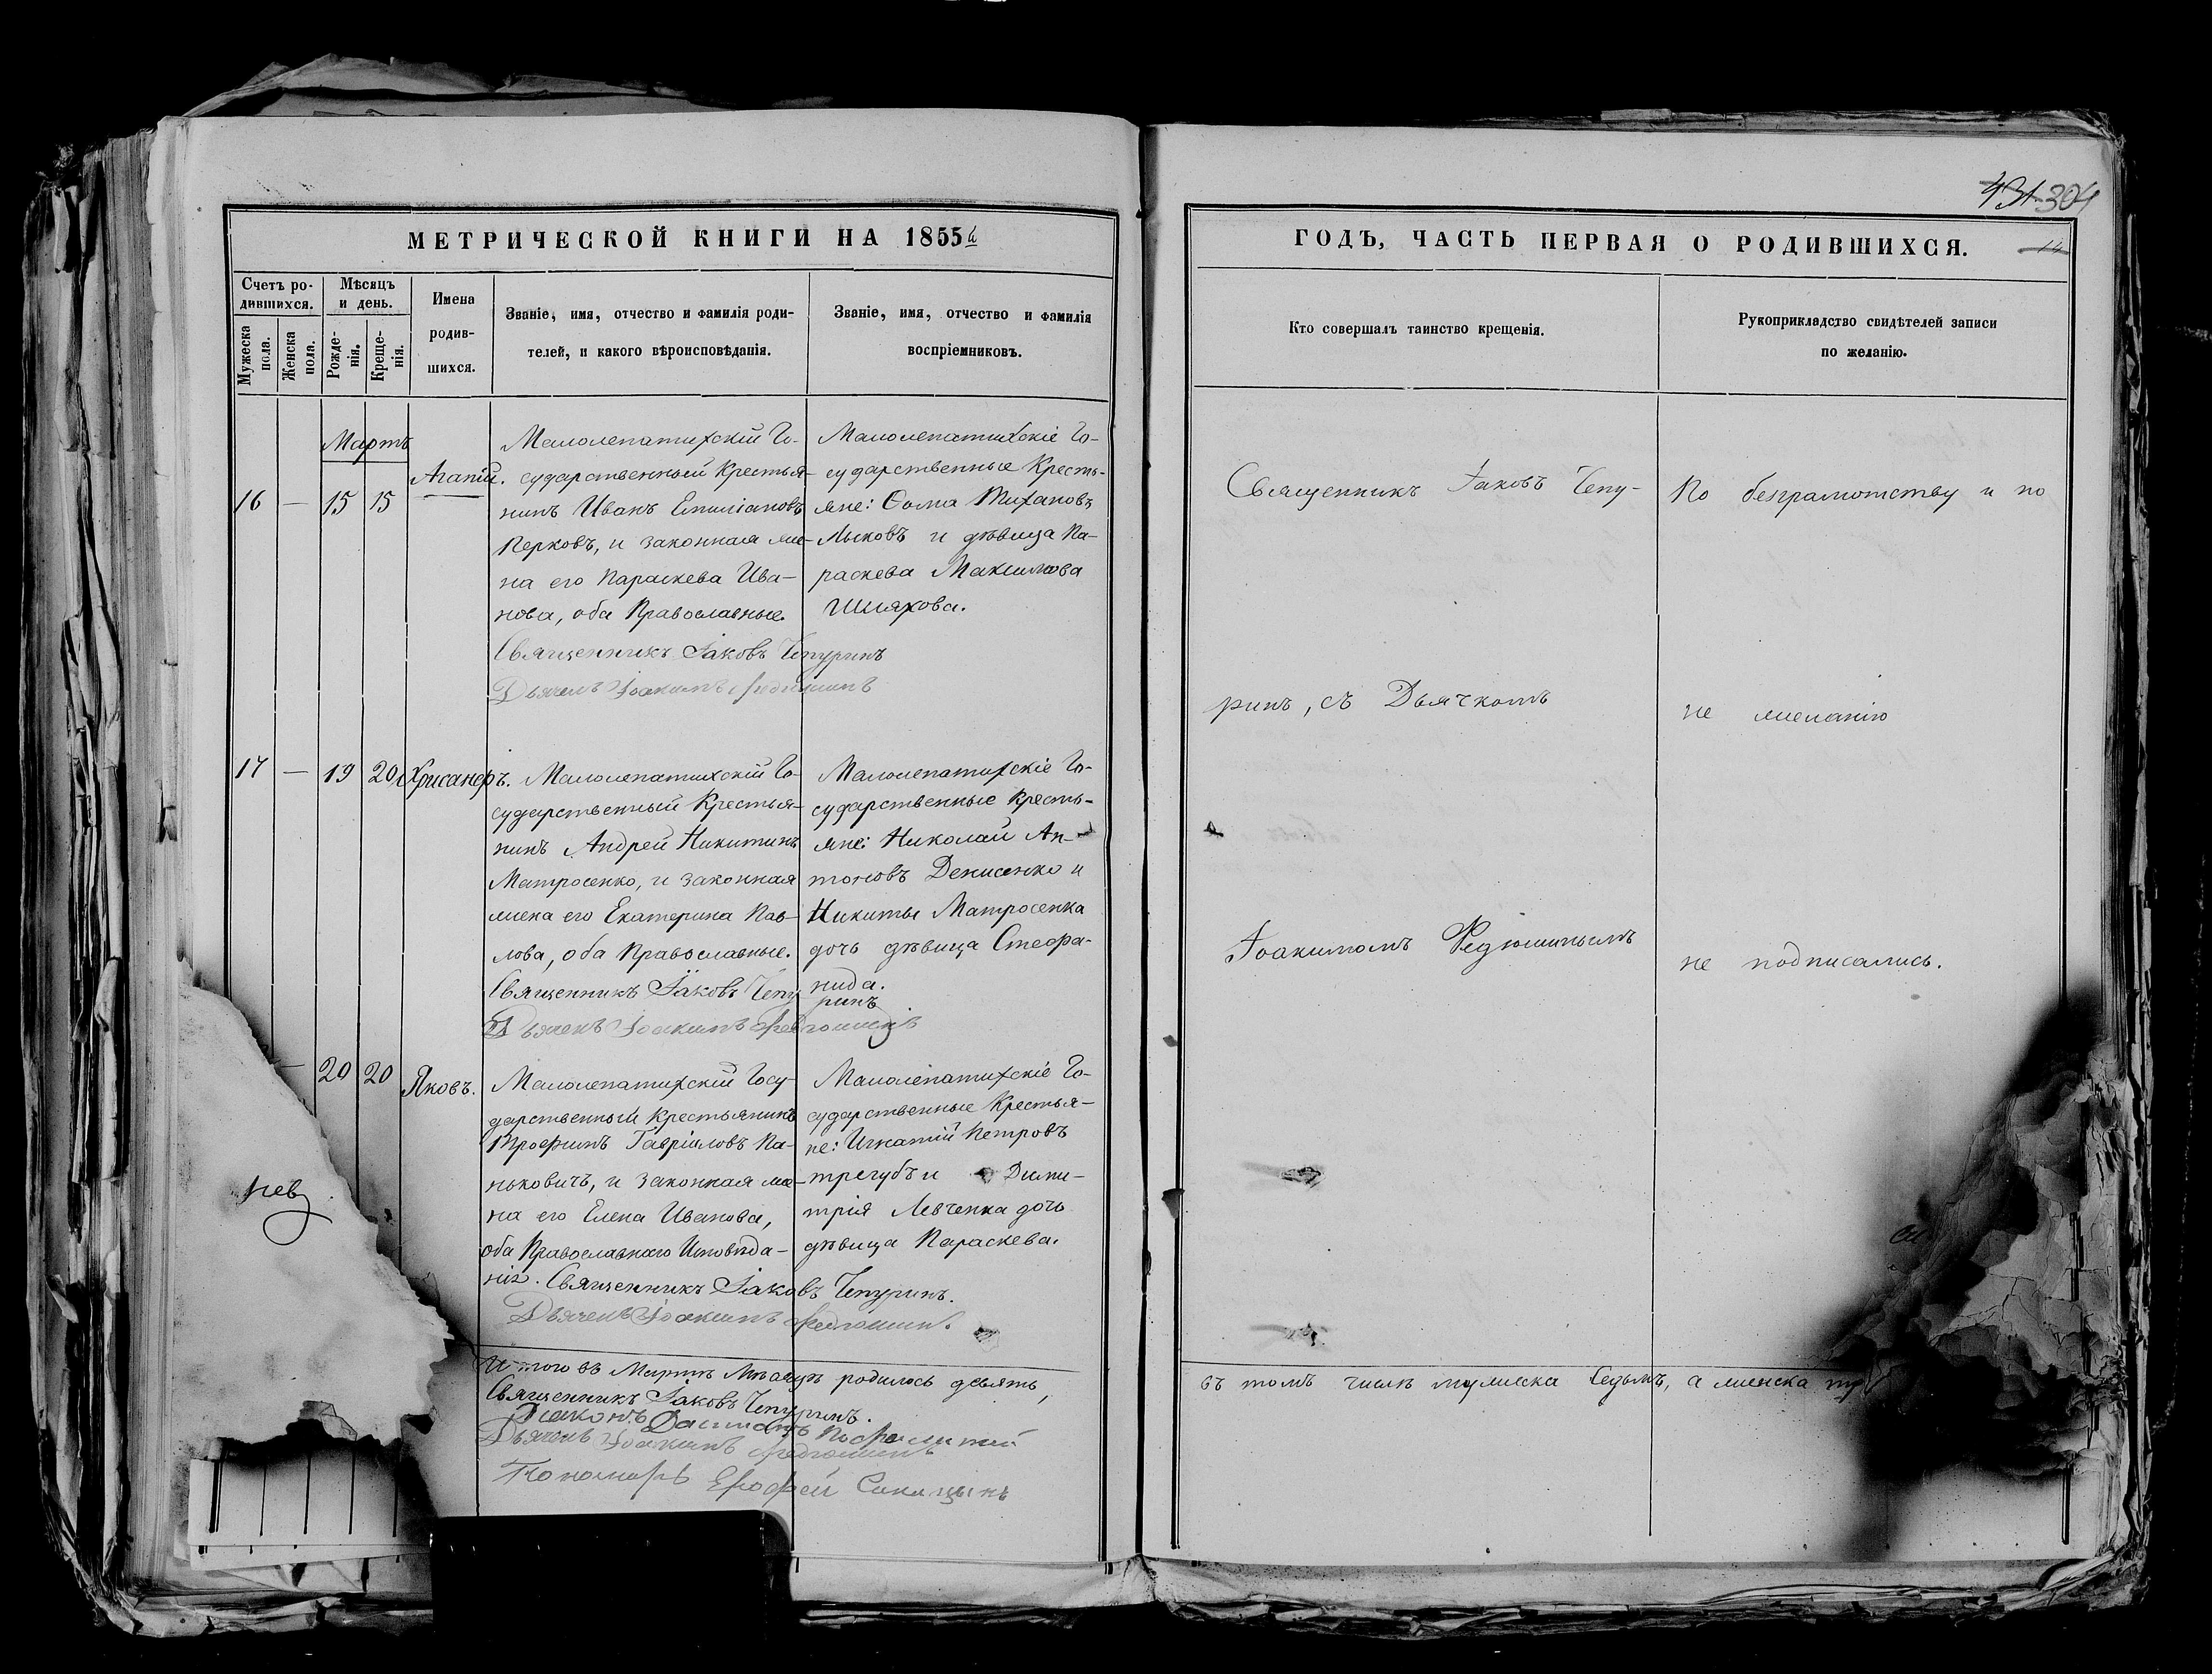 431 304
МЕТРИЧЕСКОЙ КНИГИ НА 1855й
ГОДЪ, ЧАСТЬ ПЕРВАЯ О РОДИВШИХСЯ.
14
Счетъ ро-
дившихся.
Мужеска
пола.
Женска
пола.
Мѣсяцъ
и день.
Рожде-
нія.
Креще-
нія.
Имена
родив-
шихся.
Званіе, имя, отчество и фамилія роди-
телей, и какого вѣроисповѣданія.
Званіе, имя, отчество и фамилія
воспріемниковъ.
Кто совершалъ таинство крещенія.
Рукоприкладство свидѣтелей записи
по желанію.
Мартъ
16 — 15 15
Агапій.
Малолепатихскій Го-
сударственный Крестья-
нинъ Иванъ Емиліановъ
Перковъ, и законная же-
на его Параскева Ива-
нова, оба Православные.
Священникъ Іаковъ Чепуринъ
Дьячекъ Іоакимъ Федюшинъ
Малолепатихскіе Го-
сударственные Кресть-
яне: Ѳома Тихановъ
Лыковъ и дѣвица Па-
раскева Максимова
Шляхова.
17 — 19 20
Хрисанфъ.
Малолепатихскій Го-
сударственный Крестья-
нинъ Андрей Никитинъ
Матросенко, и законная
жена его Екатерина Пав-
лова, оба Православные.
Священникъ Іаковъ Чепу
ринъ
Дьячекъ Іоакимъ Федюшинъ
Малолепатихскіе Го-
сударственные Кресть-
яне: Николай Ан-
тоновъ Денисенко и
Никиты Матросенка
дочь дѣвица Стефа-
нида.
— 20 20
Яковъ.
Малолепатихскій Госу-
дарственный Крестьянинъ
Трофимъ Гавріиловъ Па-
ньковичъ, и законная же-
на его Елена Иванова,
оба Православнаго Исповѣда-
нія. Священникъ Іаковъ Чепуринъ.
Дьячекъ Іоакимъ Федюшинъ.
Малолепатихскіе Го-
сударственные Крестья-
не: Игнатій Петровъ
трегубъ и Дими-
трія Левченка дочь
дѣвица Параскева.
Итого въ Мартѣ Мѣсяцѣ родилось девять,
Священникъ Іаковъ Чепуринъ.
Діаконъ
Дьячекъ Іоакимъ Федюшинъ
Пономарь Ерофей Синицынъ
Священникъ Іаковъ Чепу-
ринъ, съ Дьячкомъ
Іоакимомъ Федюшинымъ
По безграмотству и по
не желанію
не подписались.
въ томъ числѣ мужеска седьмъ, а женска